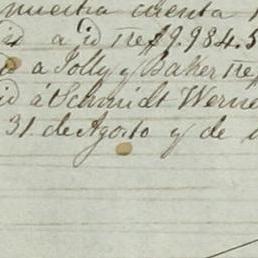 nuestra cuenta
id a id 9.984.5
a Jolly y Baker
id á Schmidt Werne
31 de Agosto y de